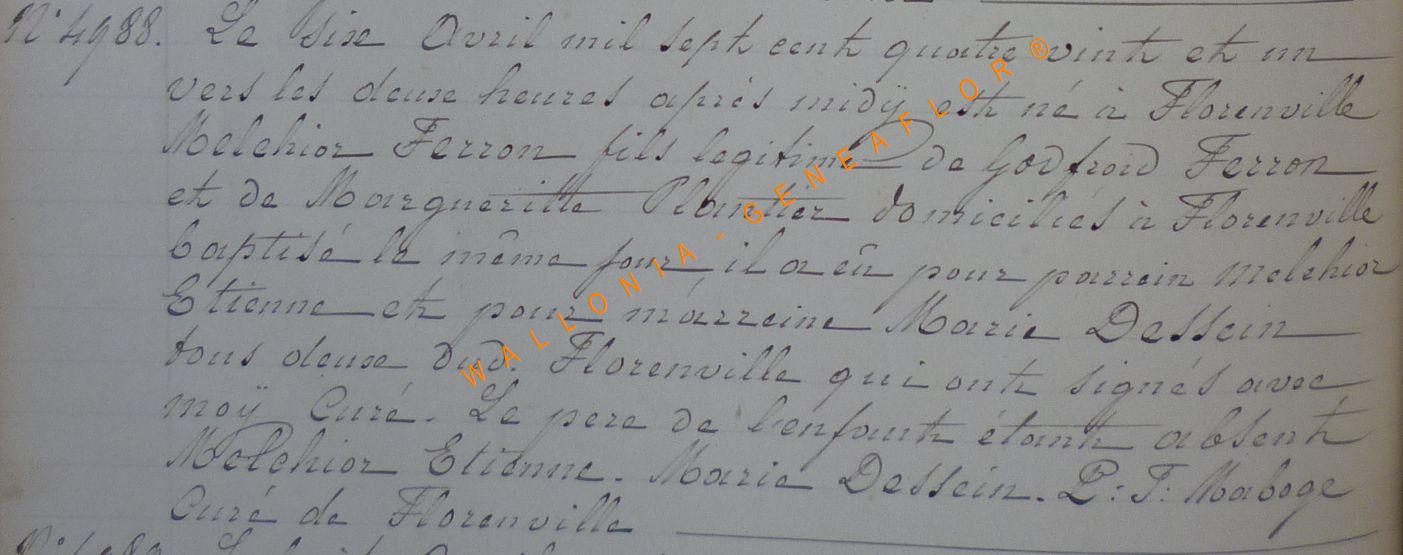 N° 4988. Le six Avril mil sept cent quatre vint et un
vers les deux heures après midÿ est né à Florenville
Melchior Ferron fils legitime de Godfroid Ferron
et de Margueritte Plantier domiciliés à Florenville
baptisé le même jour, il a eû pour parrein Melchior
Etienne et pour márreine Marie Dessein
tous deux dud. Florenville qui ont signés avec
moÿ Curé. Le pere de l'enfant étant absent
Melchior Etienne. Marie Dessein. P: F: Maboge
Curé de Florenville
WALLONIA - GENEAFLOR ®